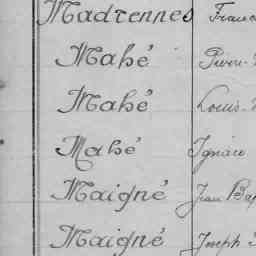 Madrennes Franc
Mahé Pierre
Mahé Louis
Mahé Ignace
Maigné Jean Bap
Maigné Joseph